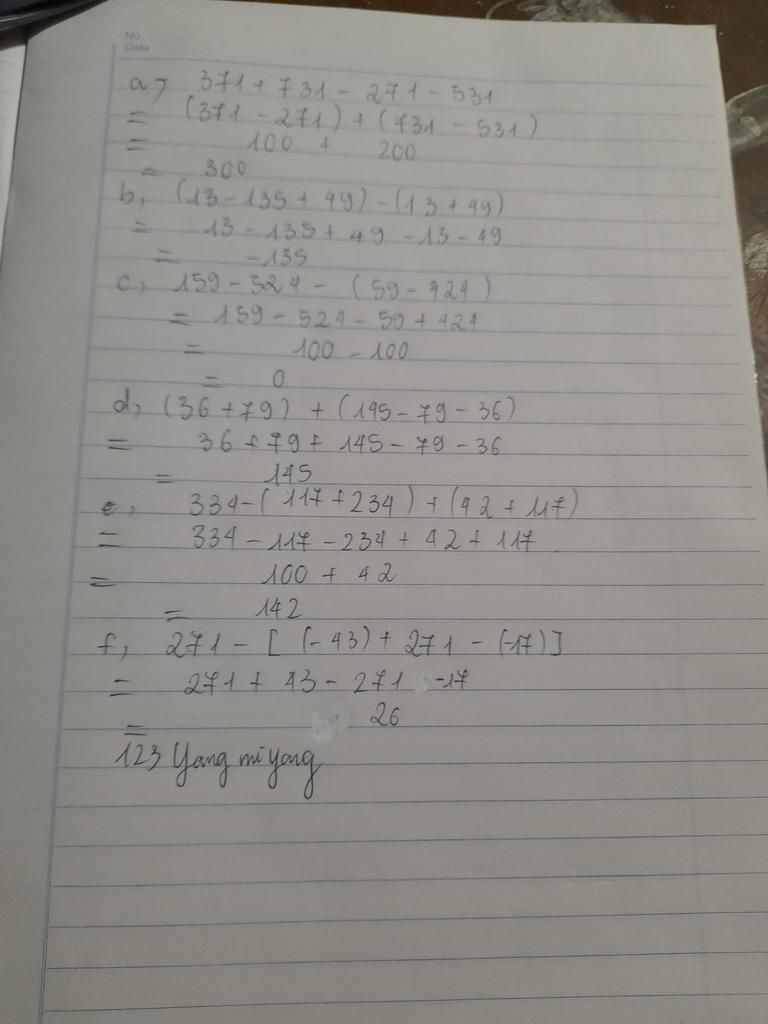 No.
Date
a, 371 + 731 - 271 - 531
= (371 - 271) + (731 - 531)
= 100 + 200
= 300
b, (13 - 135 + 49) - (13 + 49)
= 13 - 135 + 49 - 13 - 49
= -135
c, 159 - 524 - (59 - 424)
= 159 - 524 - 59 + 424
= 100 - 100
= 0
d, (36 + 79) + (145 - 79 - 36)
= 36 + 79 + 145 - 79 - 36
= 145
e, 334 - (117 + 234) + (42 + 117)
= 334 - 117 - 234 + 42 + 117
= 100 + 42
= 142
f, 271 - [ (-43) + 271 - (-17)]
= 271 + 43 - 271 -17
= 26
123 Yang mi yang